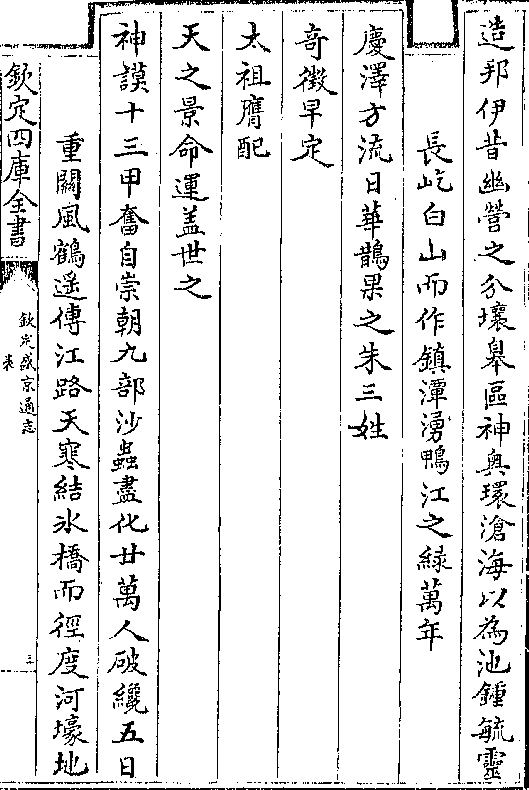 造邦伊昔幽營之分壤臯區神輿環滄海以為池鍾毓靈
長屹白山而作鎮潭湧鴨江之緑萬年
慶澤方流日華鵲果之朱三姓
竒徴早定
太祖膺配
天之景命運盖世之
神謨十三甲奮自崇朝九部沙蟲盡化廿萬人破纔五日
重關風鶴遥傳江路天寒結氷橋而徑度河壕地
欽定四庫全書
欽定盛京通志
表
三